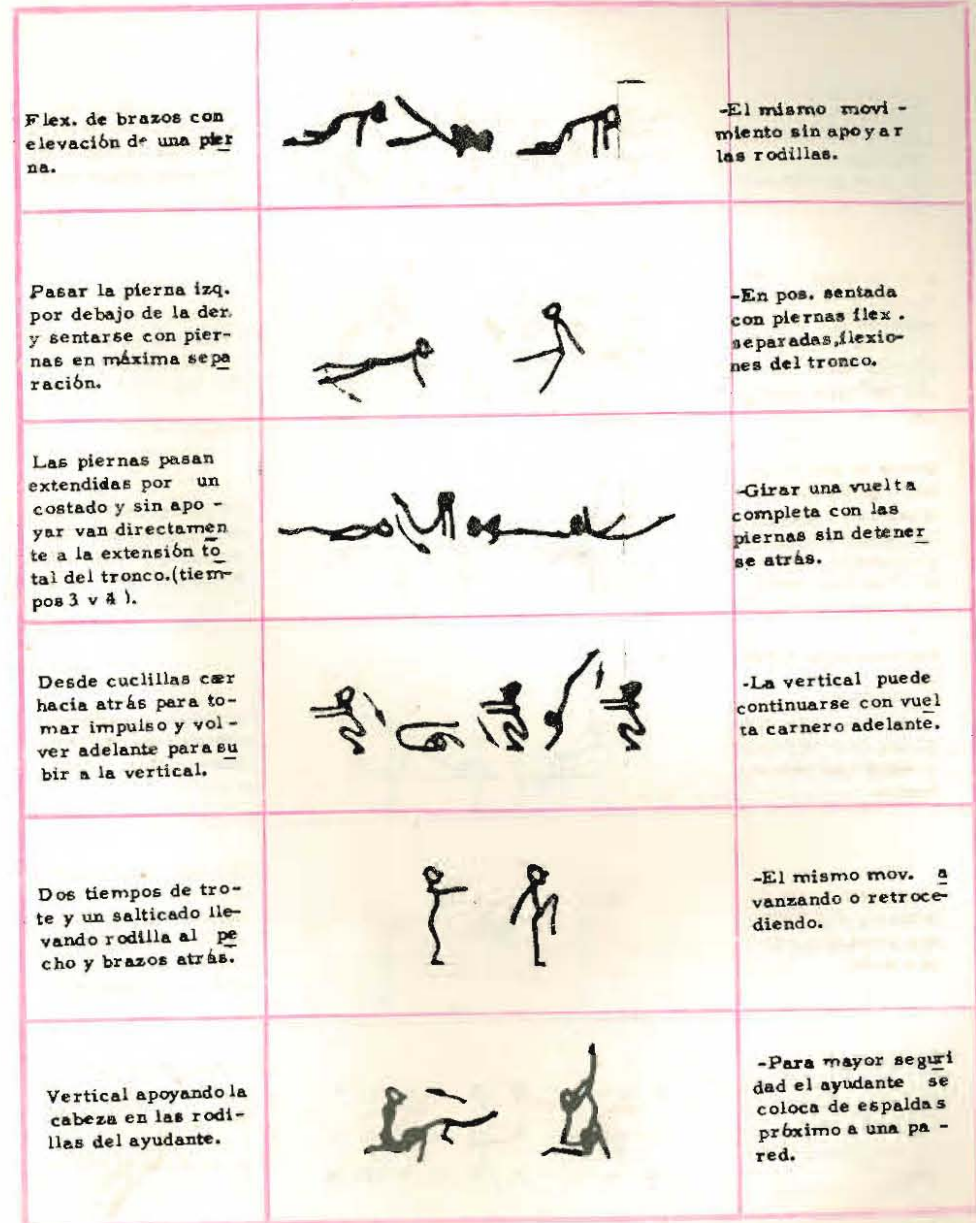 Flex. de brazos con
elevación de una pier
na.
-El mismo movi -
miento sin apoyar
las rodillas.
Pasar la pierna izq.
por debajo de la der.
y sentarse con pier-
nas en máxima sepa
ración.
-En pos. sentada
con piernas flex .
separadas,flexio-
nes del tronco.
Las piernas pasan
extendidas por un
costado y sin apo -
yar van directamen
te a la extensión to
tal del tronco.(tiem-
pos 3 y 4 ).
-Girar una vuelta
completa con las
piernas sin detener
se atrás.
Desde cuclillas caer
hacia atrás para to-
mar impulso y vol -
ver adelante para su
bir a la vertical.
-La vertical puede
continuarse con vuel
ta carnero adelante.
Dos tiempos de tro-
te y un salticado lle-
vando rodilla al pe
cho y brazos atrás.
-El mismo mov. a
vanzando o retroce-
diendo.
Vertical apoyando la
cabeza en las rodi-
llas del ayudante.
-Para mayor seguri
dad el ayudante se
coloca de espaldas
próximo a una pa -
red.